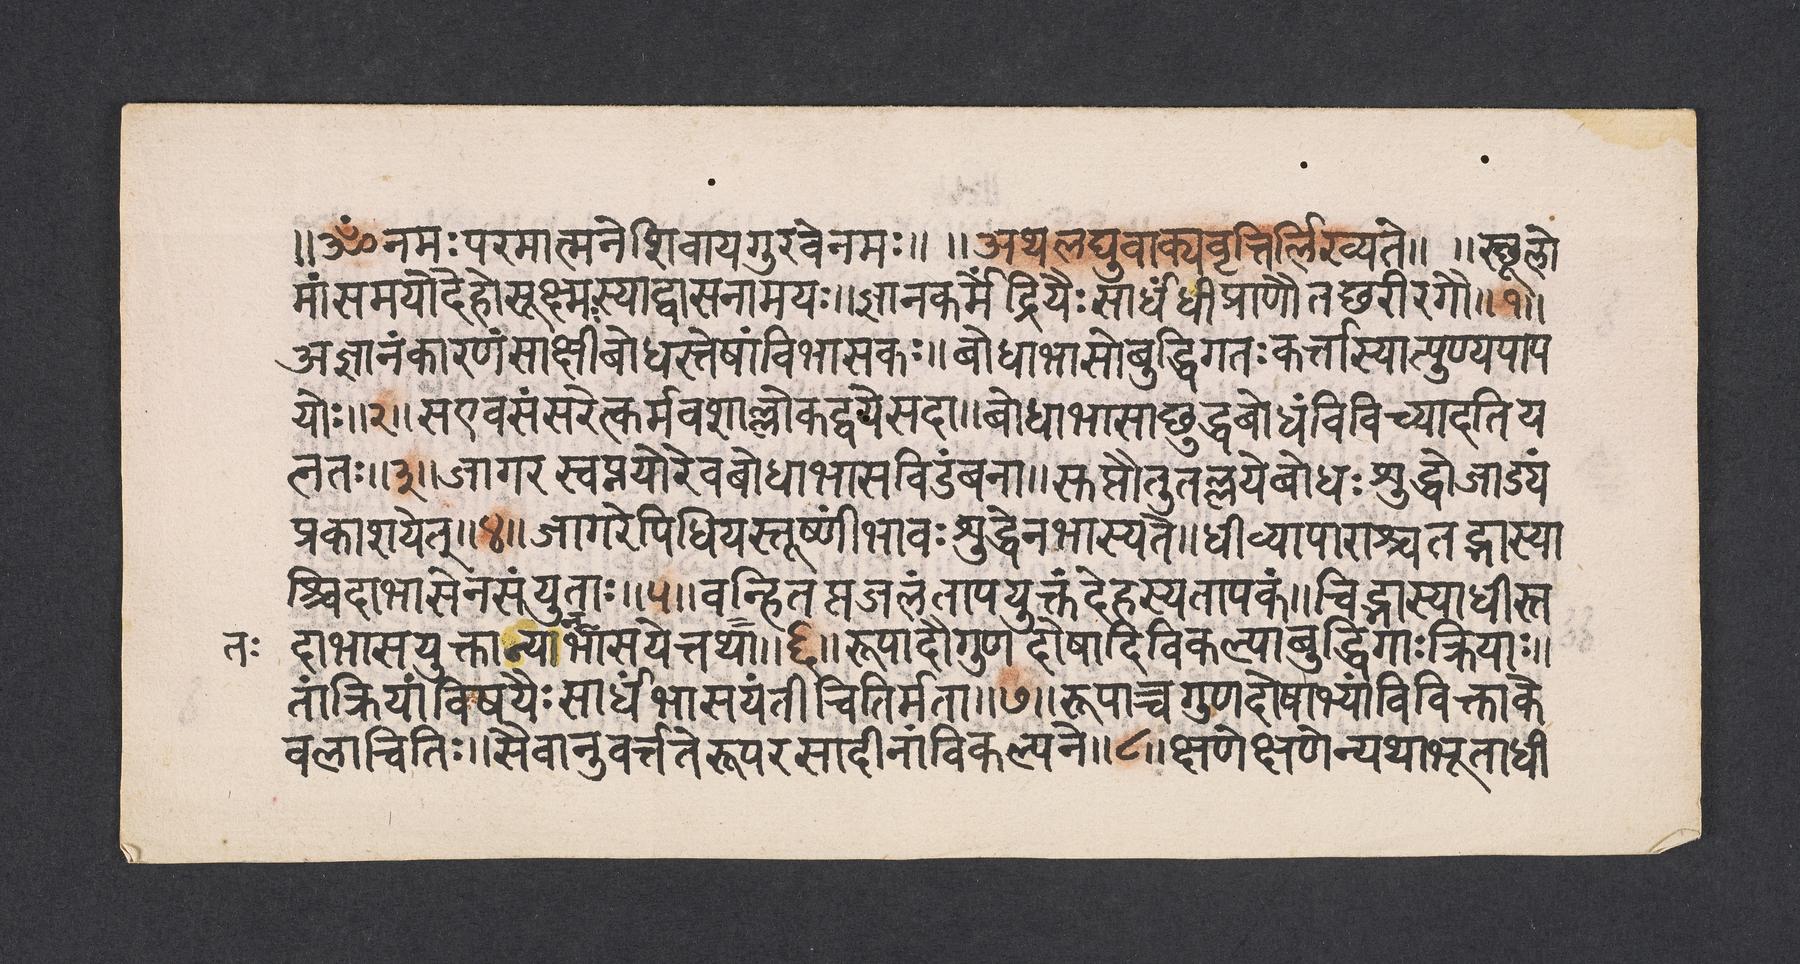 ॥ॐनमःपरमात्मनेशिवायगुरवेनमः॥ ॥अथलघुवाक्यवृत्तिर्लिख्यते॥ ॥स्थूलो
मांसमयोदेहोसूक्ष्मःस्याद्वासनामयः॥ज्ञानकर्मेंद्रियैःसार्धंधीप्राणौतछरीरगौ॥१॥
अज्ञानंकारणंसाक्षीबोधस्तेषांविभासकः॥बोधाभासोबुद्धिगतःकर्त्तास्यात्पुण्यपाप
योः॥२॥सएवसंसरेत्कर्मवशाल्लोकद्वयेसदा॥बोधाभासाछुद्धबोधंविविच्यादतिय
लतः॥३॥जागरस्वप्नयोरेवबोधाभासविडंबना॥सुप्तौतुतल्लयेबोधःशुद्धोजाड्यं
प्रकाशयेत्॥४॥जागरेपिधियस्तूष्णींभावःशुद्धेनभास्यते॥धीव्यापाराश्चतद्भास्या
श्चिदाभासेनसंयुताः॥५॥वन्हितप्तजलंतापयुक्तंदेहस्यतापकं॥चिद्भास्याधीस्त
दाभासयुक्तान्याभासयेत्तथा॥६॥रूपादौगुणदोषादिविकल्पाबुद्धिगाःक्रियाः॥
तः
तांक्रियांविषयैःसार्धंभासयंतीचितिर्मता॥७॥रूपाच्चगुणदोषाभ्यांविविक्ताके
वलाचितिः॥सैवानुवर्त्ततेरूपरसादीनांविकल्पने॥८॥क्षणेक्षणेन्यथाभूताधी